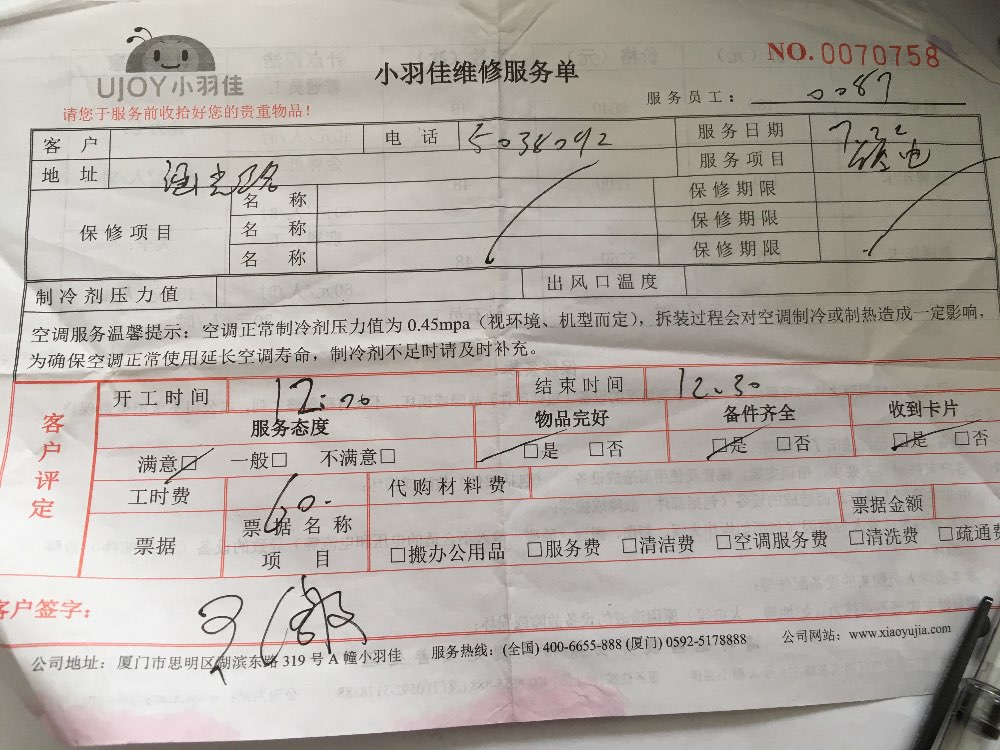 UJOY小羽佳
小羽佳维修服务单
NO. 0070758
请您于服务前收拾好您的贵重物品！
服务员工： 0087
客 户 电 话 5038092 服务日期 7.22
地 址 服务项目
保修项目 名 称 保修期限
名 称 保修期限
名 称 保修期限
制冷剂压力值 出风口温度
空调服务温馨提示：空调正常制冷剂压力值为 0.45mpa（视环境、机型而定），拆装过程会对空调制冷或制热造成一定影响，
为确保空调正常使用延长空调寿命，制冷剂不足时请及时补充。
客户评定
开工时间 12:00 结束时间 12.30
服务态度 物品完好 备件齐全 收到卡片
满意□ 一般□ 不满意□ □是 □否 □是 □否 □是 □否
工时费 60. 代购材料费
票据 票据名称 票据金额
项 目 □搬办公用品 □服务费 □清洁费 □空调服务费 □清洗费 □疏通费
客户签字：
公司地址：厦门市思明区湖滨东路 319 号 A 幢小羽佳 服务热线：(全国) 400-6655-888 (厦门) 0592-5178888 公司网站：www.xiaoyujia.com